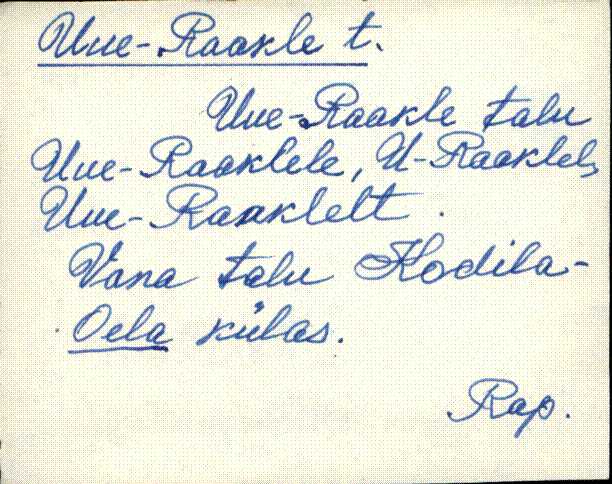 Uue-Raakle t.
Uue-Raakle talu
Uue-Raaklele, U-Raaklel,
Uue-Raaklelt.
Vana talu Kodila-
Oela külas.
Rap.